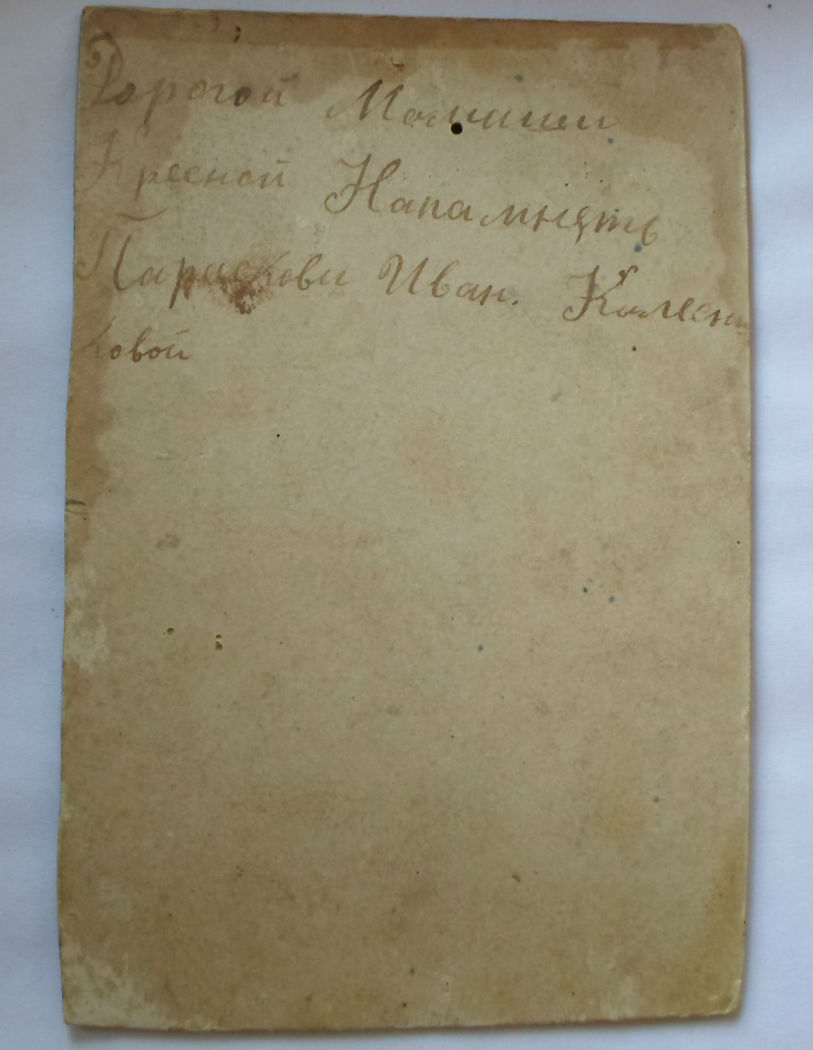 Дорогой Мамаши
Кресной Напамнять
Парасковi Иван. Колесни
ковой